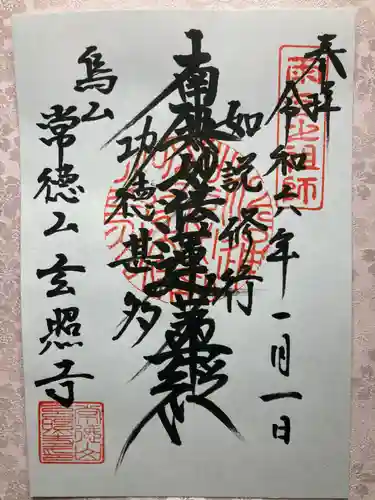 奉拝
雨乞之祖師
令和六年一月一日
如説修行
南無妙法蓮華経
功徳甚多
烏山
常徳山玄照寺